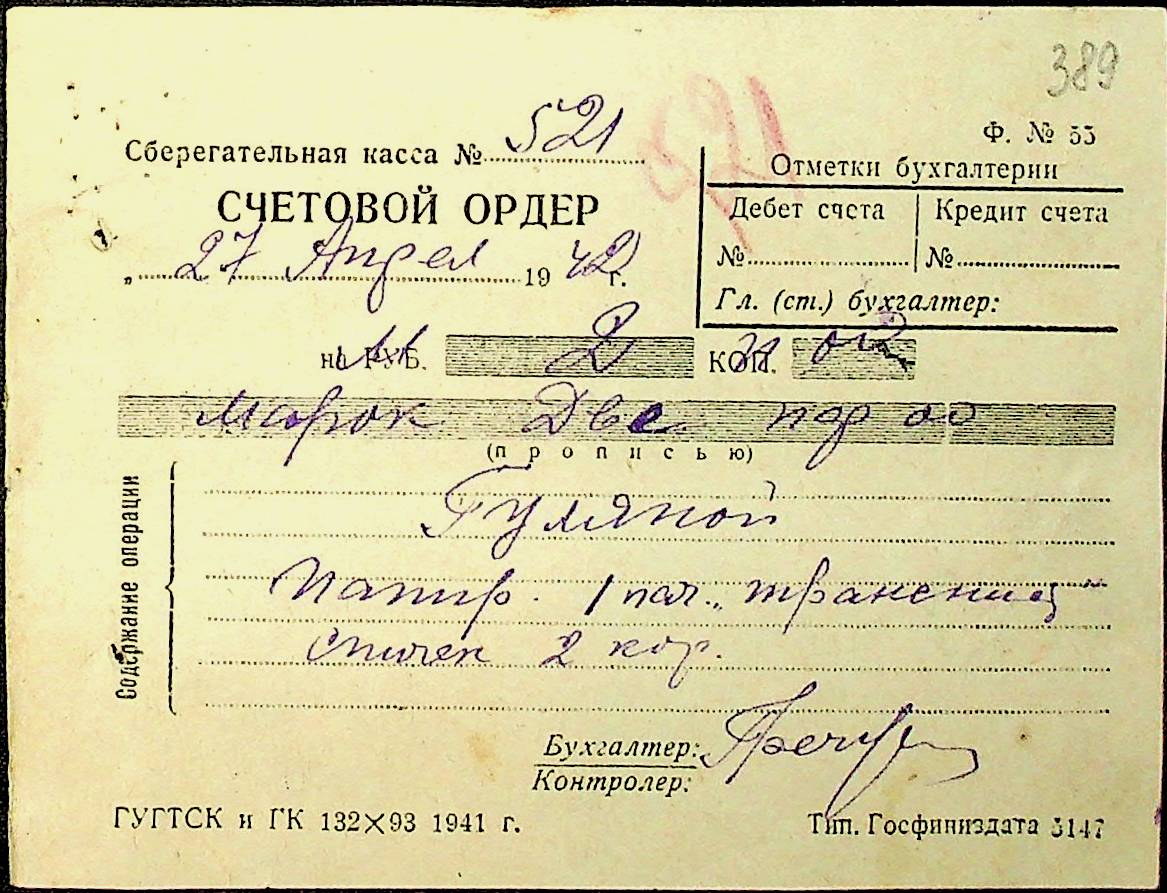 389
Ф. № 55
Сберегательная касса № 521
СЧЕТОВОЙ ОРДЕР
„ 27 Апрел 1942 г.
Отметки бухгалтерии
Дебет счета
Кредит счета
№
№
Гл. (ст.) бухгалтер:
на РУБ. 2 КОП. 02
Марок Две пф 02
(прописью)
Содержание операции
Гуляной
Папир. 1 пач.
спичек 2 кор.
Бухгалтер:
Контролер:
ГУГТСК и ГК 132×93 1941 г.
Тип. Госфиниздата 5147